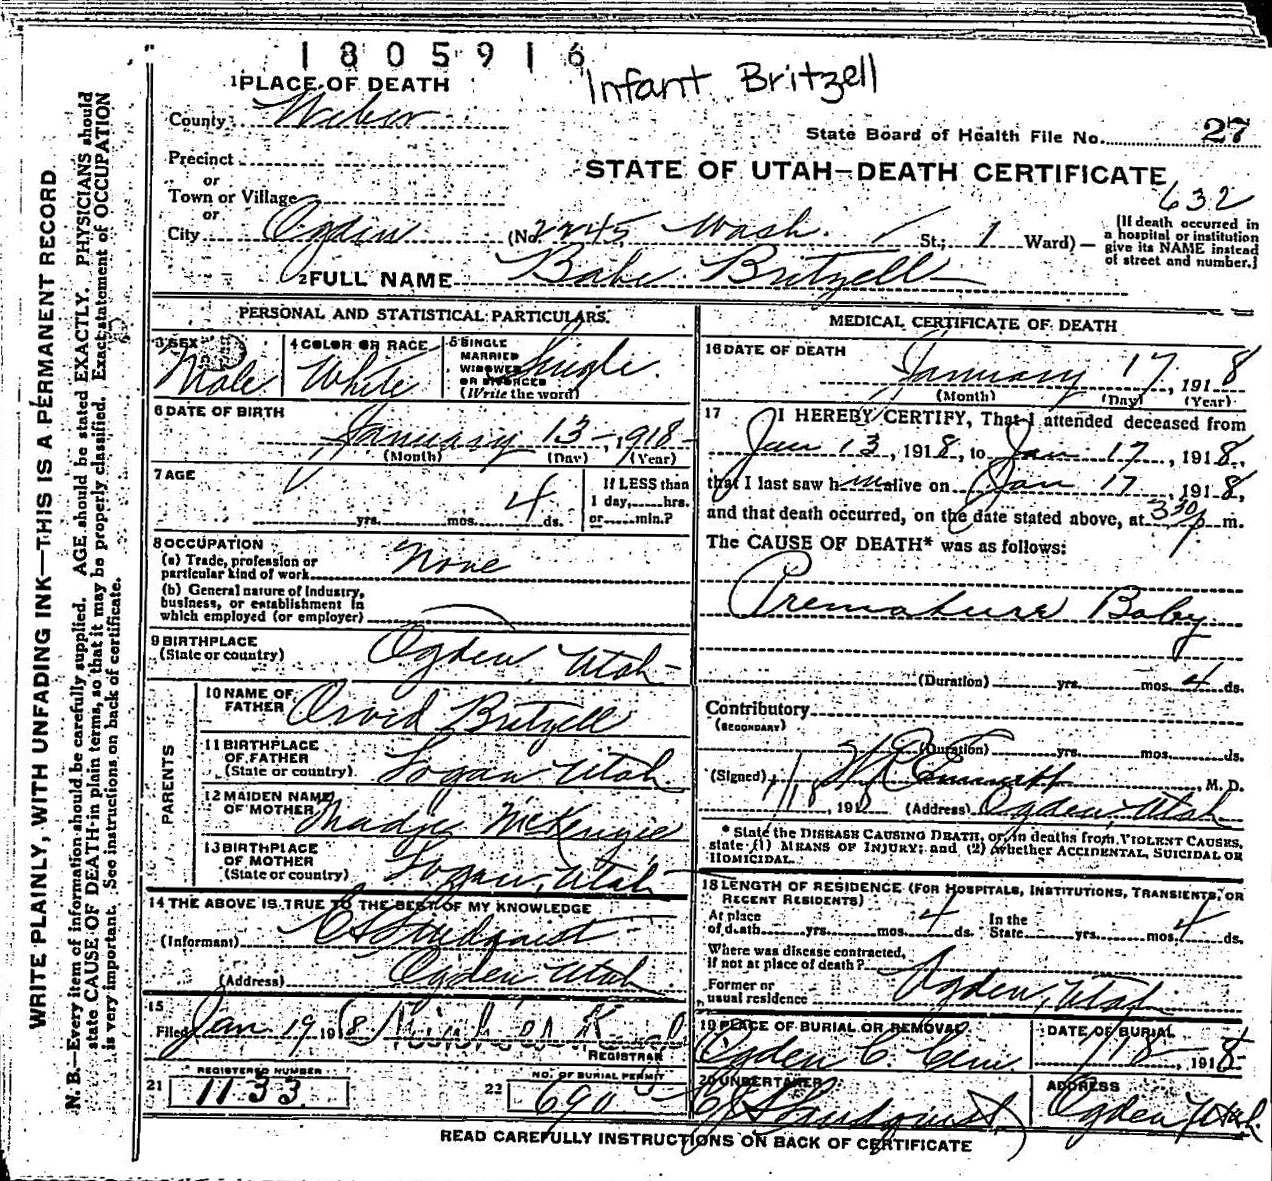 1805916
Infant Britzell
1 PLACE OF DEATH
County Weber
State Board of Health File No. 27
Precinct
or
STATE OF UTAH—DEATH CERTIFICATE
632
Town or Village
or
City Ogden (No. 2245 Wash. St.; 1 Ward)—
[If death occurred in
a hospital or institution
give its NAME instead
of street and number.]
2 FULL NAME Babe Britzell
WRITE PLAINLY, WITH UNFADING INK—THIS IS A PERMANENT RECORD.
N. B.—Every item of information should be carefully supplied. AGE should be stated EXACTLY. PHYSICIANS should
state CAUSE OF DEATH in plain terms, so that it may be properly classified. Exact statement of OCCUPATION
is very important. See instructions on back of certificate.
PERSONAL AND STATISTICAL PARTICULARS.
3 SEX
Male
4 COLOR OR RACE
White
5 SINGLE
MARRIED
WIDOWED
OR DIVORCED
(Write the word)
Single.
6 DATE OF BIRTH
January 13-, 1918-
(Month) (Day) (Year)
7 AGE
yrs. mos. 4 ds.
If LESS than
1 day, hrs.
or min.?
8 OCCUPATION
(a) Trade, profession or
particular kind of work None
(b) General nature of Industry,
business, or establishment in
which employed (or employer)
9 BIRTHPLACE
(State or country) Ogden, Utah-
PARENTS
10 NAME OF
FATHER Orvid Britzell
11 BIRTHPLACE
OF FATHER
(State or country) Logan Utah.
12 MAIDEN NAME
OF MOTHER Madge McKenzie
13 BIRTHPLACE
OF MOTHER
(State or country) Logan, Utah
14 THE ABOVE IS TRUE TO THE BEST OF MY KNOWLEDGE
(Informant)
(Address) Ogden Utah
15
Filed Jan 19 1918
REGISTRAR
REGISTERED NUMBER
21 1133
NO. OF BURIAL PERMIT
22 690
MEDICAL CERTIFICATE OF DEATH
16 DATE OF DEATH
January 17, 1918
(Month) (Day) (Year)
17 I HEREBY CERTIFY, That I attended deceased from
Jan 13, 1918, to Jan 17, 1918,
that I last saw him alive on Jan 17, 1918,
and that death occurred, on the date stated above, at 330 p m.
The CAUSE OF DEATH* was as follows:
Premature Baby
(Duration) yrs. mos. 4 ds.
Contributory
(SECONDARY)
(Duration) yrs. mos. ds.
(Signed) , M. D.
1/18, 1918 (Address) Ogden, Utah
* State the DISEASE CAUSING DEATH, or, in deaths from VIOLENT CAUSES,
state (1) MEANS OF INJURY; and (2) whether ACCIDENTAL, SUICIDAL OR
HOMICIDAL.
18 LENGTH OF RESIDENCE (FOR HOSPITALS, INSTITUTIONS, TRANSIENTS, OR
RECENT RESIDENTS)
At place
of death yrs. mos. 4 ds.
In the
State yrs. mos. 4 ds.
Where was disease contracted,
if not at place of death?
Former or
usual residence Ogden, Utah
19 PLACE OF BURIAL OR REMOVAL
Ogden C. Cem.
DATE OF BURIAL
1/18-, 1918
20 UNDERTAKER
ADDRESS
Ogden Utah.
READ CAREFULLY INSTRUCTIONS ON BACK OF CERTIFICATE